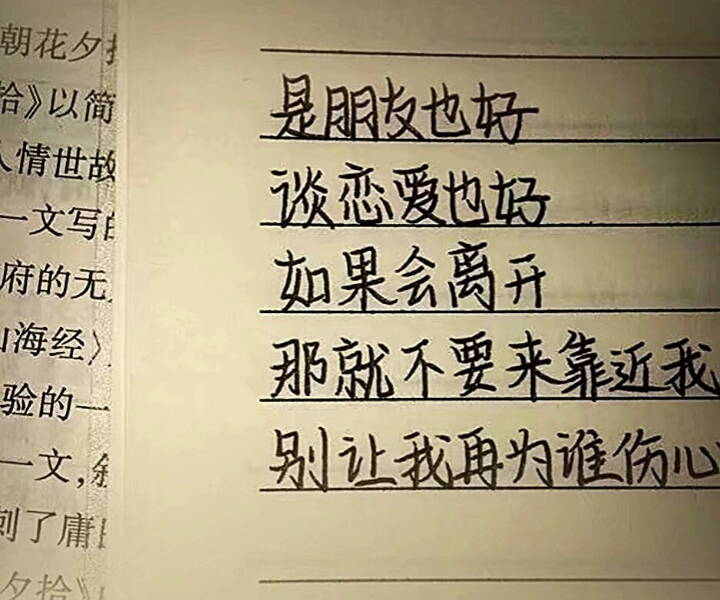 朝花夕
拾》以简
人情世故
一文写的
府的无
山海经》
验的一
一文，
刺了庸
夕拾》
是朋友也好
谈恋爱也好
如果会离开
那就不要来靠近我
别让我再为谁伤心